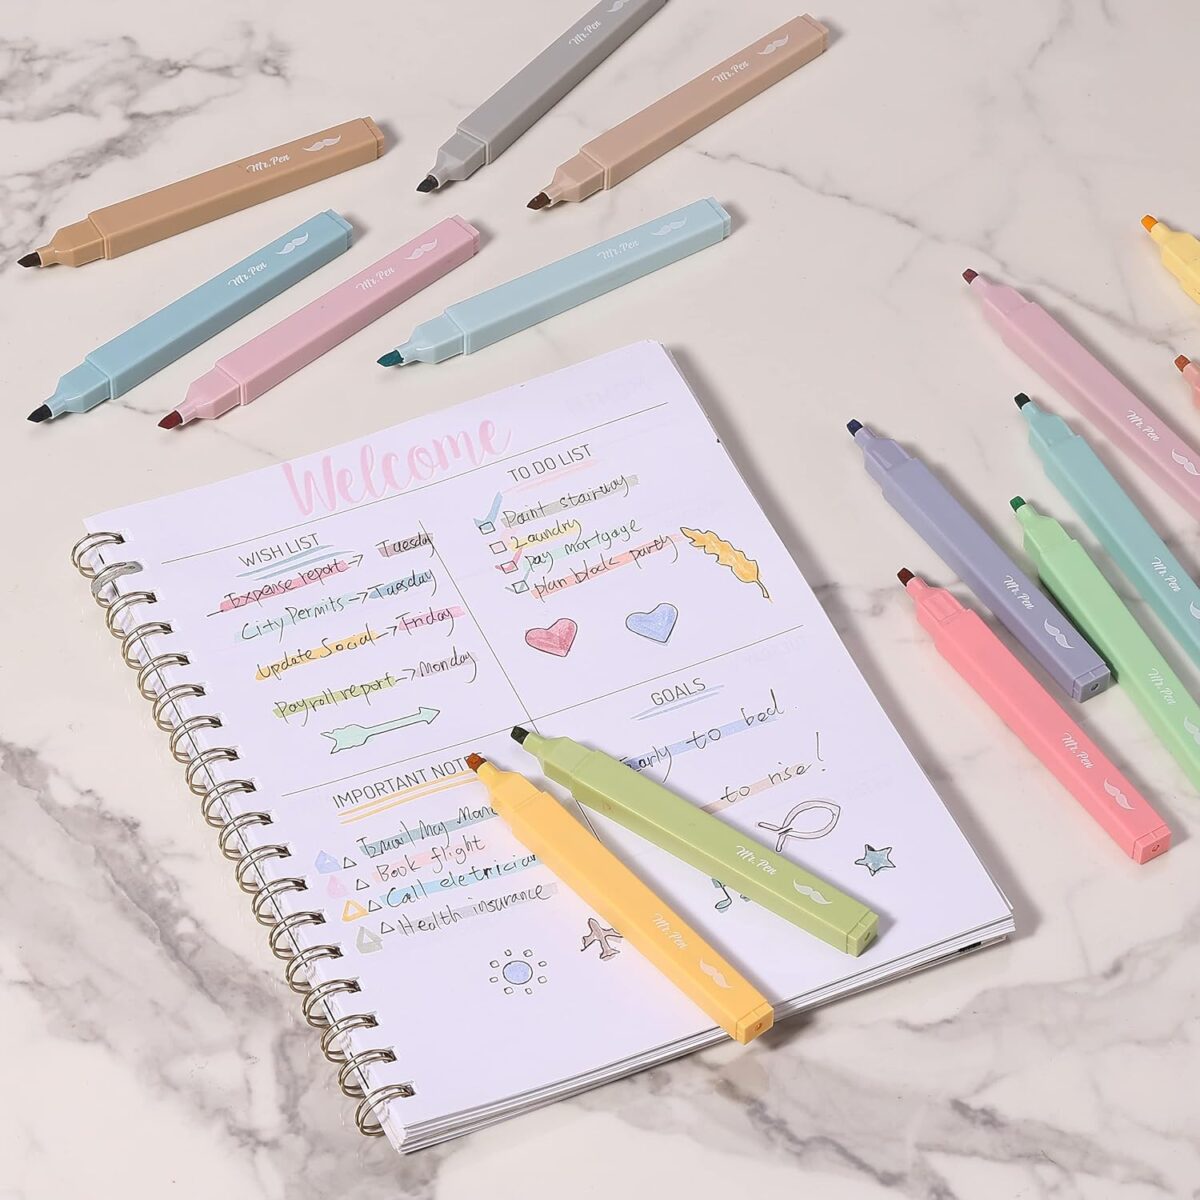 Mr. Pen
Mr. Pen
Mr. Pen
Mr. Pen
Mr. Pen
Mr. Pen
Welcome
WISH LIST
Expense report → Tuesday
City Permits → Tuesday
Update Social → Friday
Payroll report → Monday
TO DO LIST
Paint stairway
Laundry
pay mortgage
plan block party
GOALS
Early to bed
to rise!
IMPORTANT NOTE
Email My Mon
Book flight
Call eletrician
Health insurance
Mr. Pen
Mr. Pen
Mr. Pen
Mr. Pen
Mr. Pen
Mr. Pen
Mr. Pen